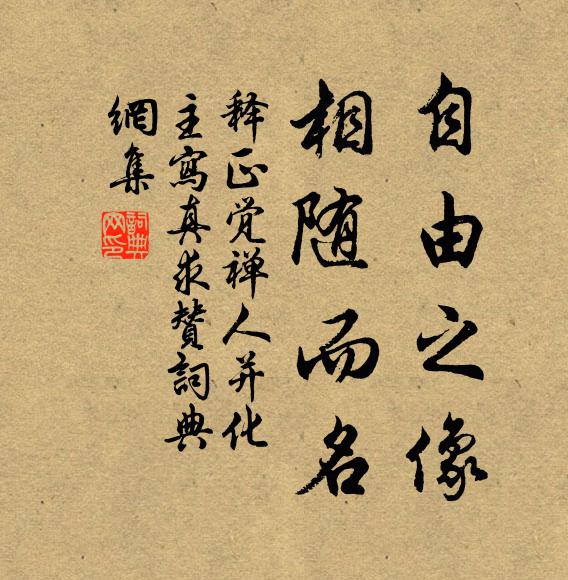 自由之像
相随而名
释正觉禅人并化
主寫真求賛詞典
網集
詞典
网印